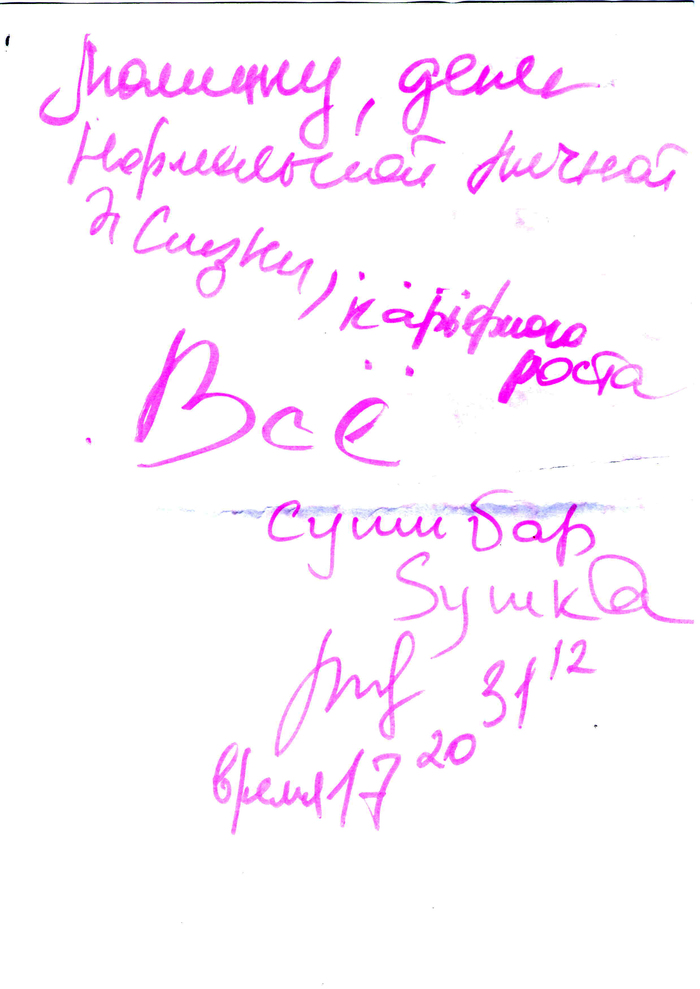 машину, денег
нормальной личной
жизни, карьерного
роста
Всё
суши бар
Sушка
31 12
время 17 20